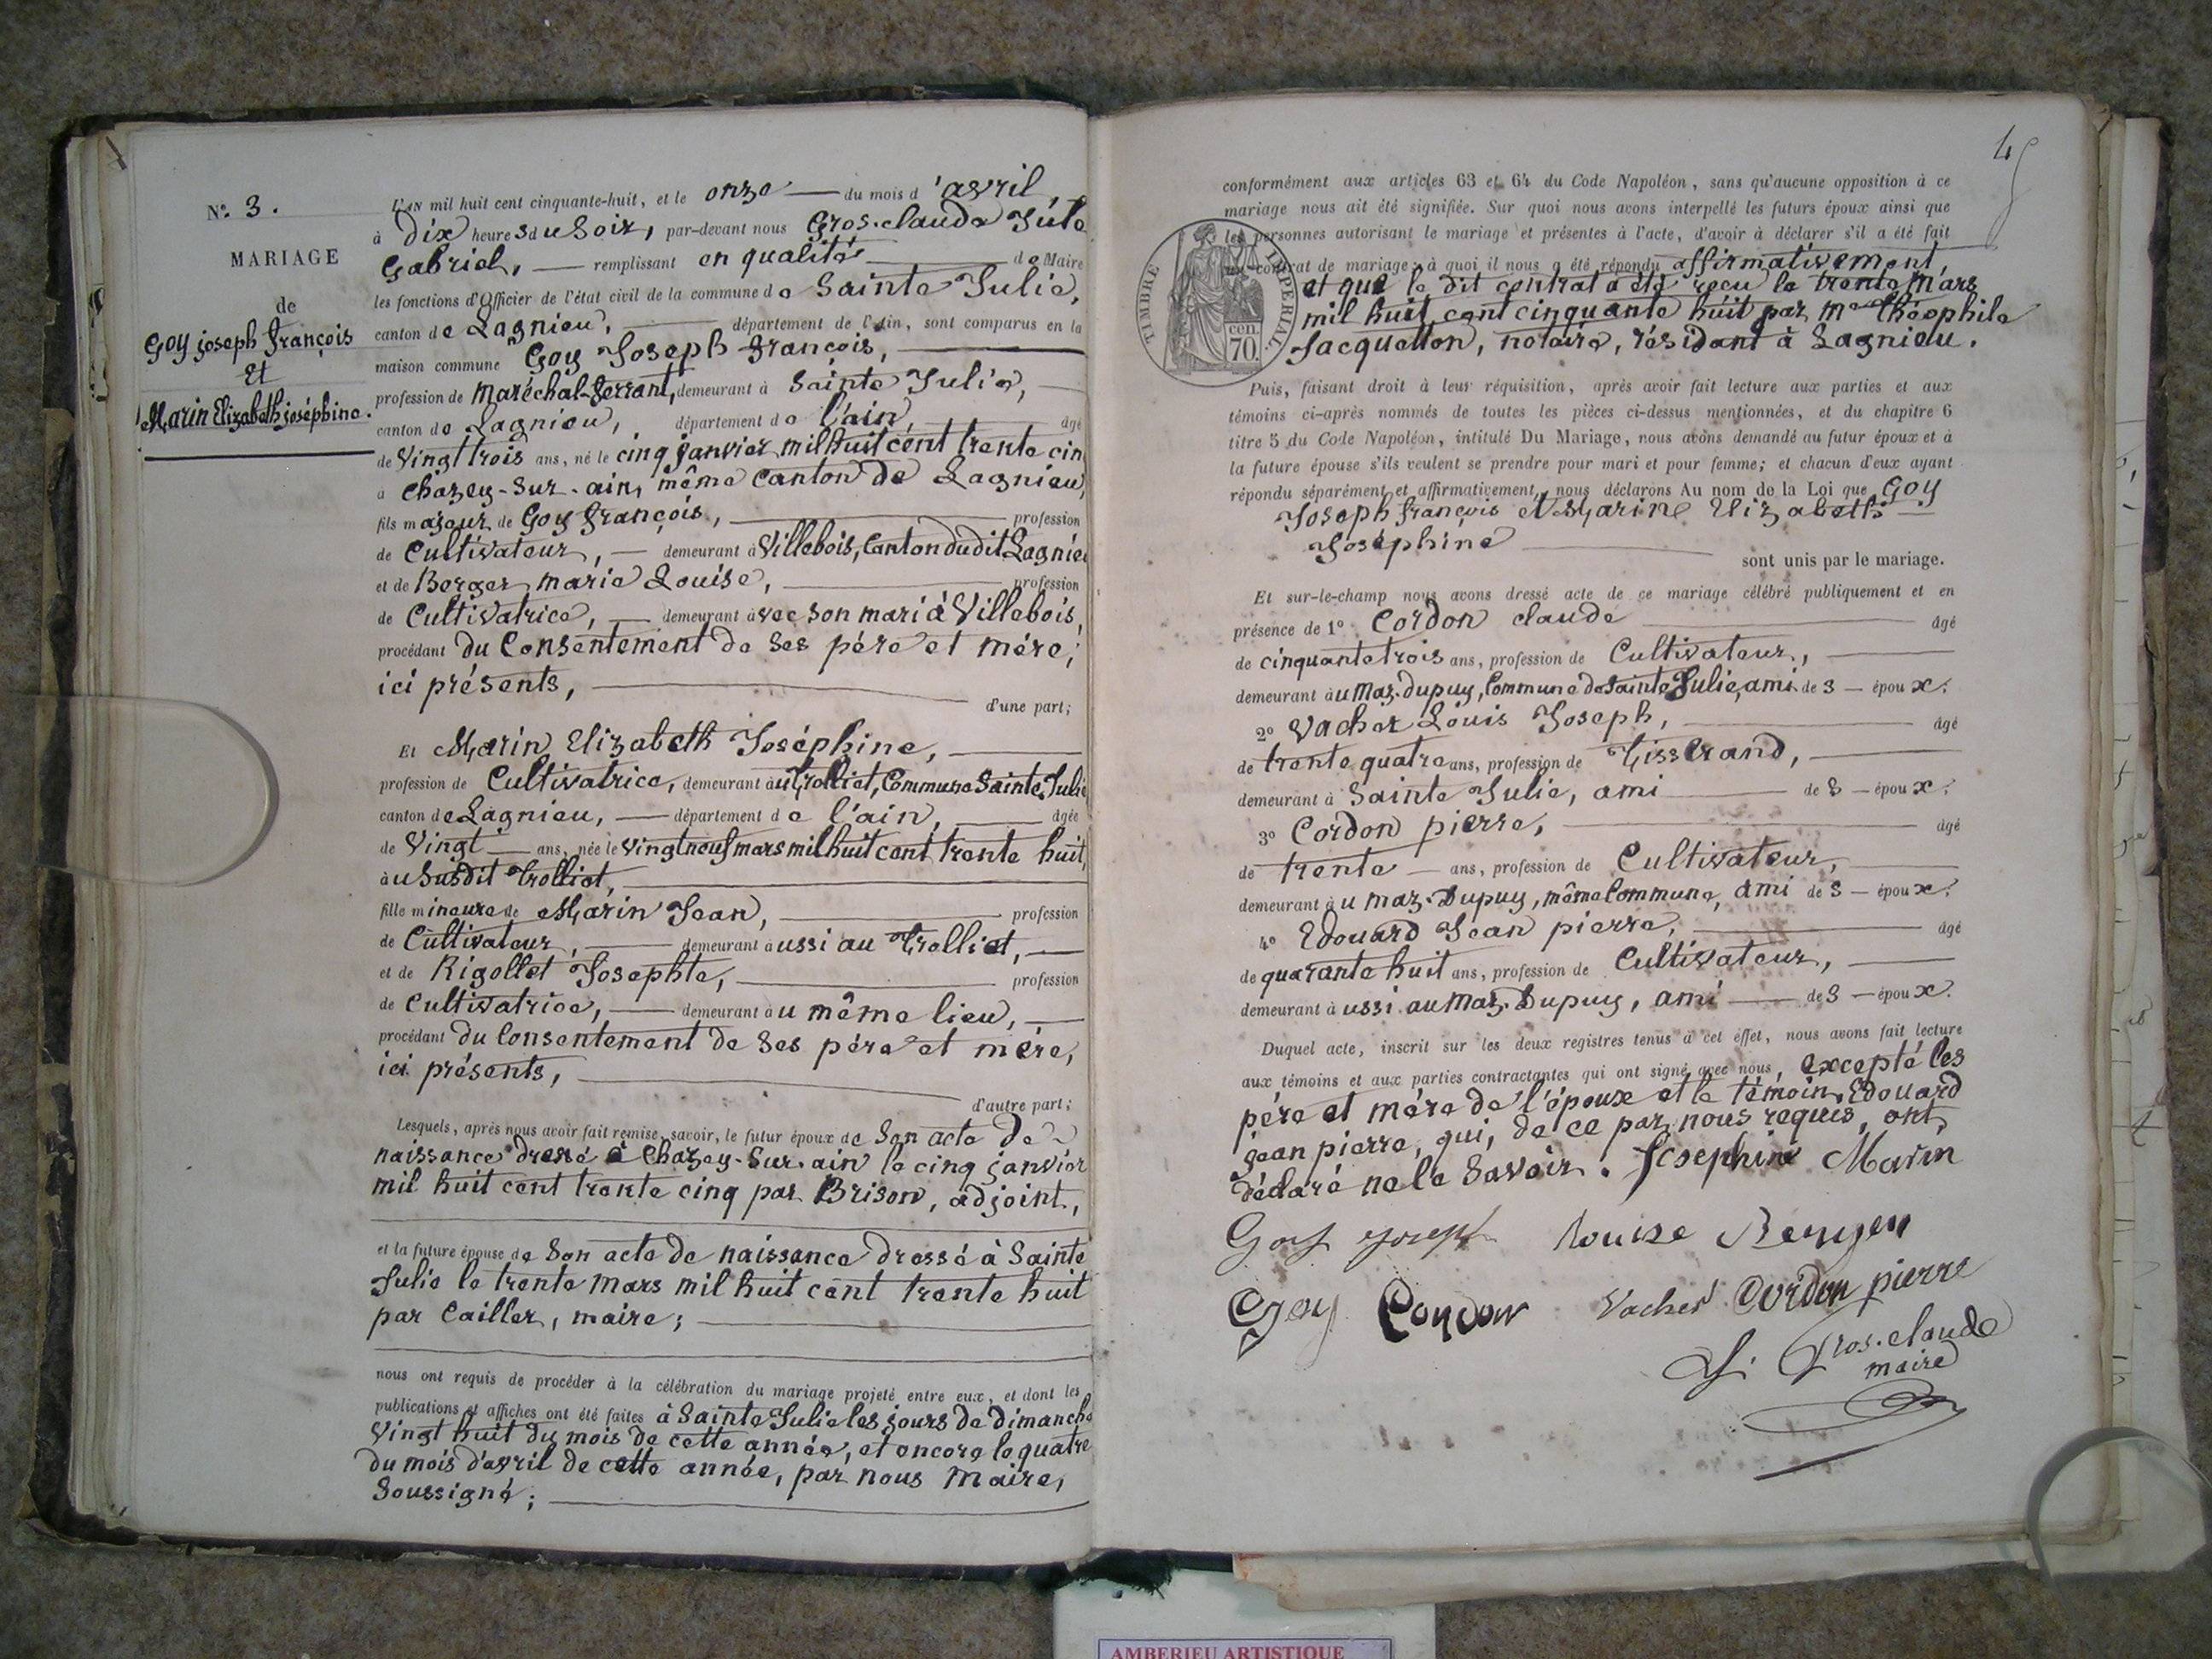 Nº 3.
MARIAGE
de
Goy joseph françois
Et
Marin Elizabeth joséphine.
L'AN mil huit cent cinquante-huit, et le onze du mois d'avril,
à dix heures du Soir, par-devant nous Gros-claude Jule
Gabriel, remplissant en qualité de Maire
les fonctions d'Officier de l'état civil de la commune de Sainte Julie,
canton de Lagnieu, département de l'Ain, sont comparus en la
maison commune Goy Joseph françois,
profession de Maréchal-ferrant, demeurant à Sainte Julie,
canton de Lagnieu, département de l'ain, âgé
de Vingt trois ans, né le cinq janvier mil huit cent trente cin
à Chazey-Sur-ain, même Canton de Lagnieu,
fils majeur de Goy françois, profession
de Cultivateur, demeurant à Villebois, Canton dudit Lagnieu
et de Berger marie Louise, profession
de Cultivatrice, demeurant avec son mari à Villebois,
procédant du Consentement de Ses père et mère,
ici présents,
d'une part;
Et Marin Elizabeth Joséphine,
profession de Cultivatrice, demeurant au Trolliet, Commune Sainte Julie
canton de Lagnieu, département de l'ain, âgée
de Vingt ans, née le Vingt neuf mars mil huit cent trente huit,
au Susdit Trolliet,
fille mineure de Marin Jean, profession
de Cultivateur, demeurant aussi au Trolliet,
et de Rigollet Josephte, profession
de Cultivatrice, demeurant au même lieu,
procédant du Consentement de Ses père et mère,
ici présents,
d'autre part;
Lesquels, après nous avoir fait remise, savoir, le futur époux de Son acte de
naissance dressé à Chazey-Sur-ain le cinq janvier
mil huit cent trente cinq par Brison, adjoint,
et la future épouse de Son acte de naissance dressé à Sainte
Julie le trente Mars mil huit cent trente huit
par Cailler, maire;
nous ont requis de procéder à la célébration du mariage projeté entre eux, et dont les
publications et affiches ont été faites à Sainte Julie les jours de dimanche
Vingt huit du mois de cette année, et encore le quatre
du mois d'avril de cette année, par nous Maire,
Soussigné;
45
conformément aux articles 63 et 64 du Code Napoléon, sans qu'aucune opposition à ce
mariage nous ait été signifiée. Sur quoi nous avons interpellé les futurs époux ainsi que
les personnes autorisant le mariage et présentes à l'acte, d'avoir à déclarer s'il a été fait
un contrat de mariage; à quoi il nous a été répondu affirmativement,
et que le dit contrat a été reçu le trente Mars
mil huit cent cinquante huit par Me Théophile
Jacquetton, notaire, résidant à Lagnieu.
TIMBRE IMPERIAL
cen.
70.
Puis, faisant droit à leur réquisition, après avoir fait lecture aux parties et aux
témoins ci-après nommés de toutes les pièces ci-dessus mentionnées, et du chapitre 6
titre 5 du Code Napoléon, intitulé Du Mariage, nous avons demandé au futur époux et à
la future épouse s'ils veulent se prendre pour mari et pour femme; et chacun d'eux ayant
répondu séparément et affirmativement, nous déclarons Au nom de la Loi que Goy
Joseph françois et Marin Elizabeth
Joséphine
sont unis par le mariage.
Et sur-le-champ nous avons dressé acte de ce mariage célébré publiquement et en
présence de 1º Cordon claude âgé
de cinquante trois ans, profession de Cultivateur,
demeurant au Maz-dupuy, Commune de Sainte Julie, ami de s époux.
2º Vacher Louis Joseph, âgé
de trente quatre ans, profession de Tisserand,
demeurant à Sainte Julie, ami de s époux.
3º Cordon pierre, âgé
de trente ans, profession de Cultivateur,
demeurant au Maz-Dupuy, même Commune, ami de s époux.
4º Edouard Jean pierre, âgé
de quarante huit ans, profession de Cultivateur,
demeurant aussi au Maz-Dupuy, ami de s époux.
Duquel acte, inscrit sur les deux registres tenus à cet effet, nous avons fait lecture
aux témoins et aux parties contractantes qui ont signé avec nous, excepté les
père et mère de l'épouse et le témoin Edouard
jean pierre, qui, de ce par nous requis, ont
déclaré ne le Savoir. Josephine Marin
Goy joseph Louise Berger
Goy Cordon Vacher Cordon pierre
Gros-claude
maire
AMBERIEU ARTISTIQUE